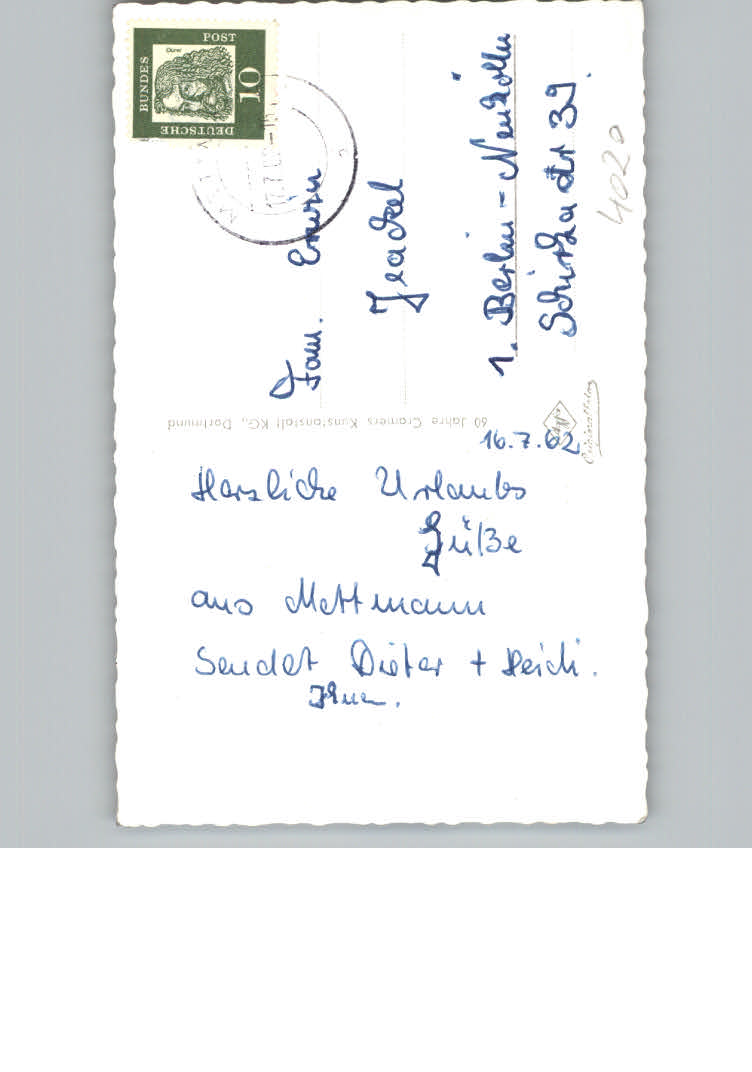 16.7.62
Herzliche Urlaubs
Grüße
aus Mettmann
Sendet Dieter + Heidi.
Fam. Erwin
Jeackel
1. Berlin - Neukölln
Schierker Str 39.
4020
60 Jahre Cramers Kunstanstalt KG., Dortmund
DEUTSCHE
BUNDES
POST
10
Dürer
17.7.6